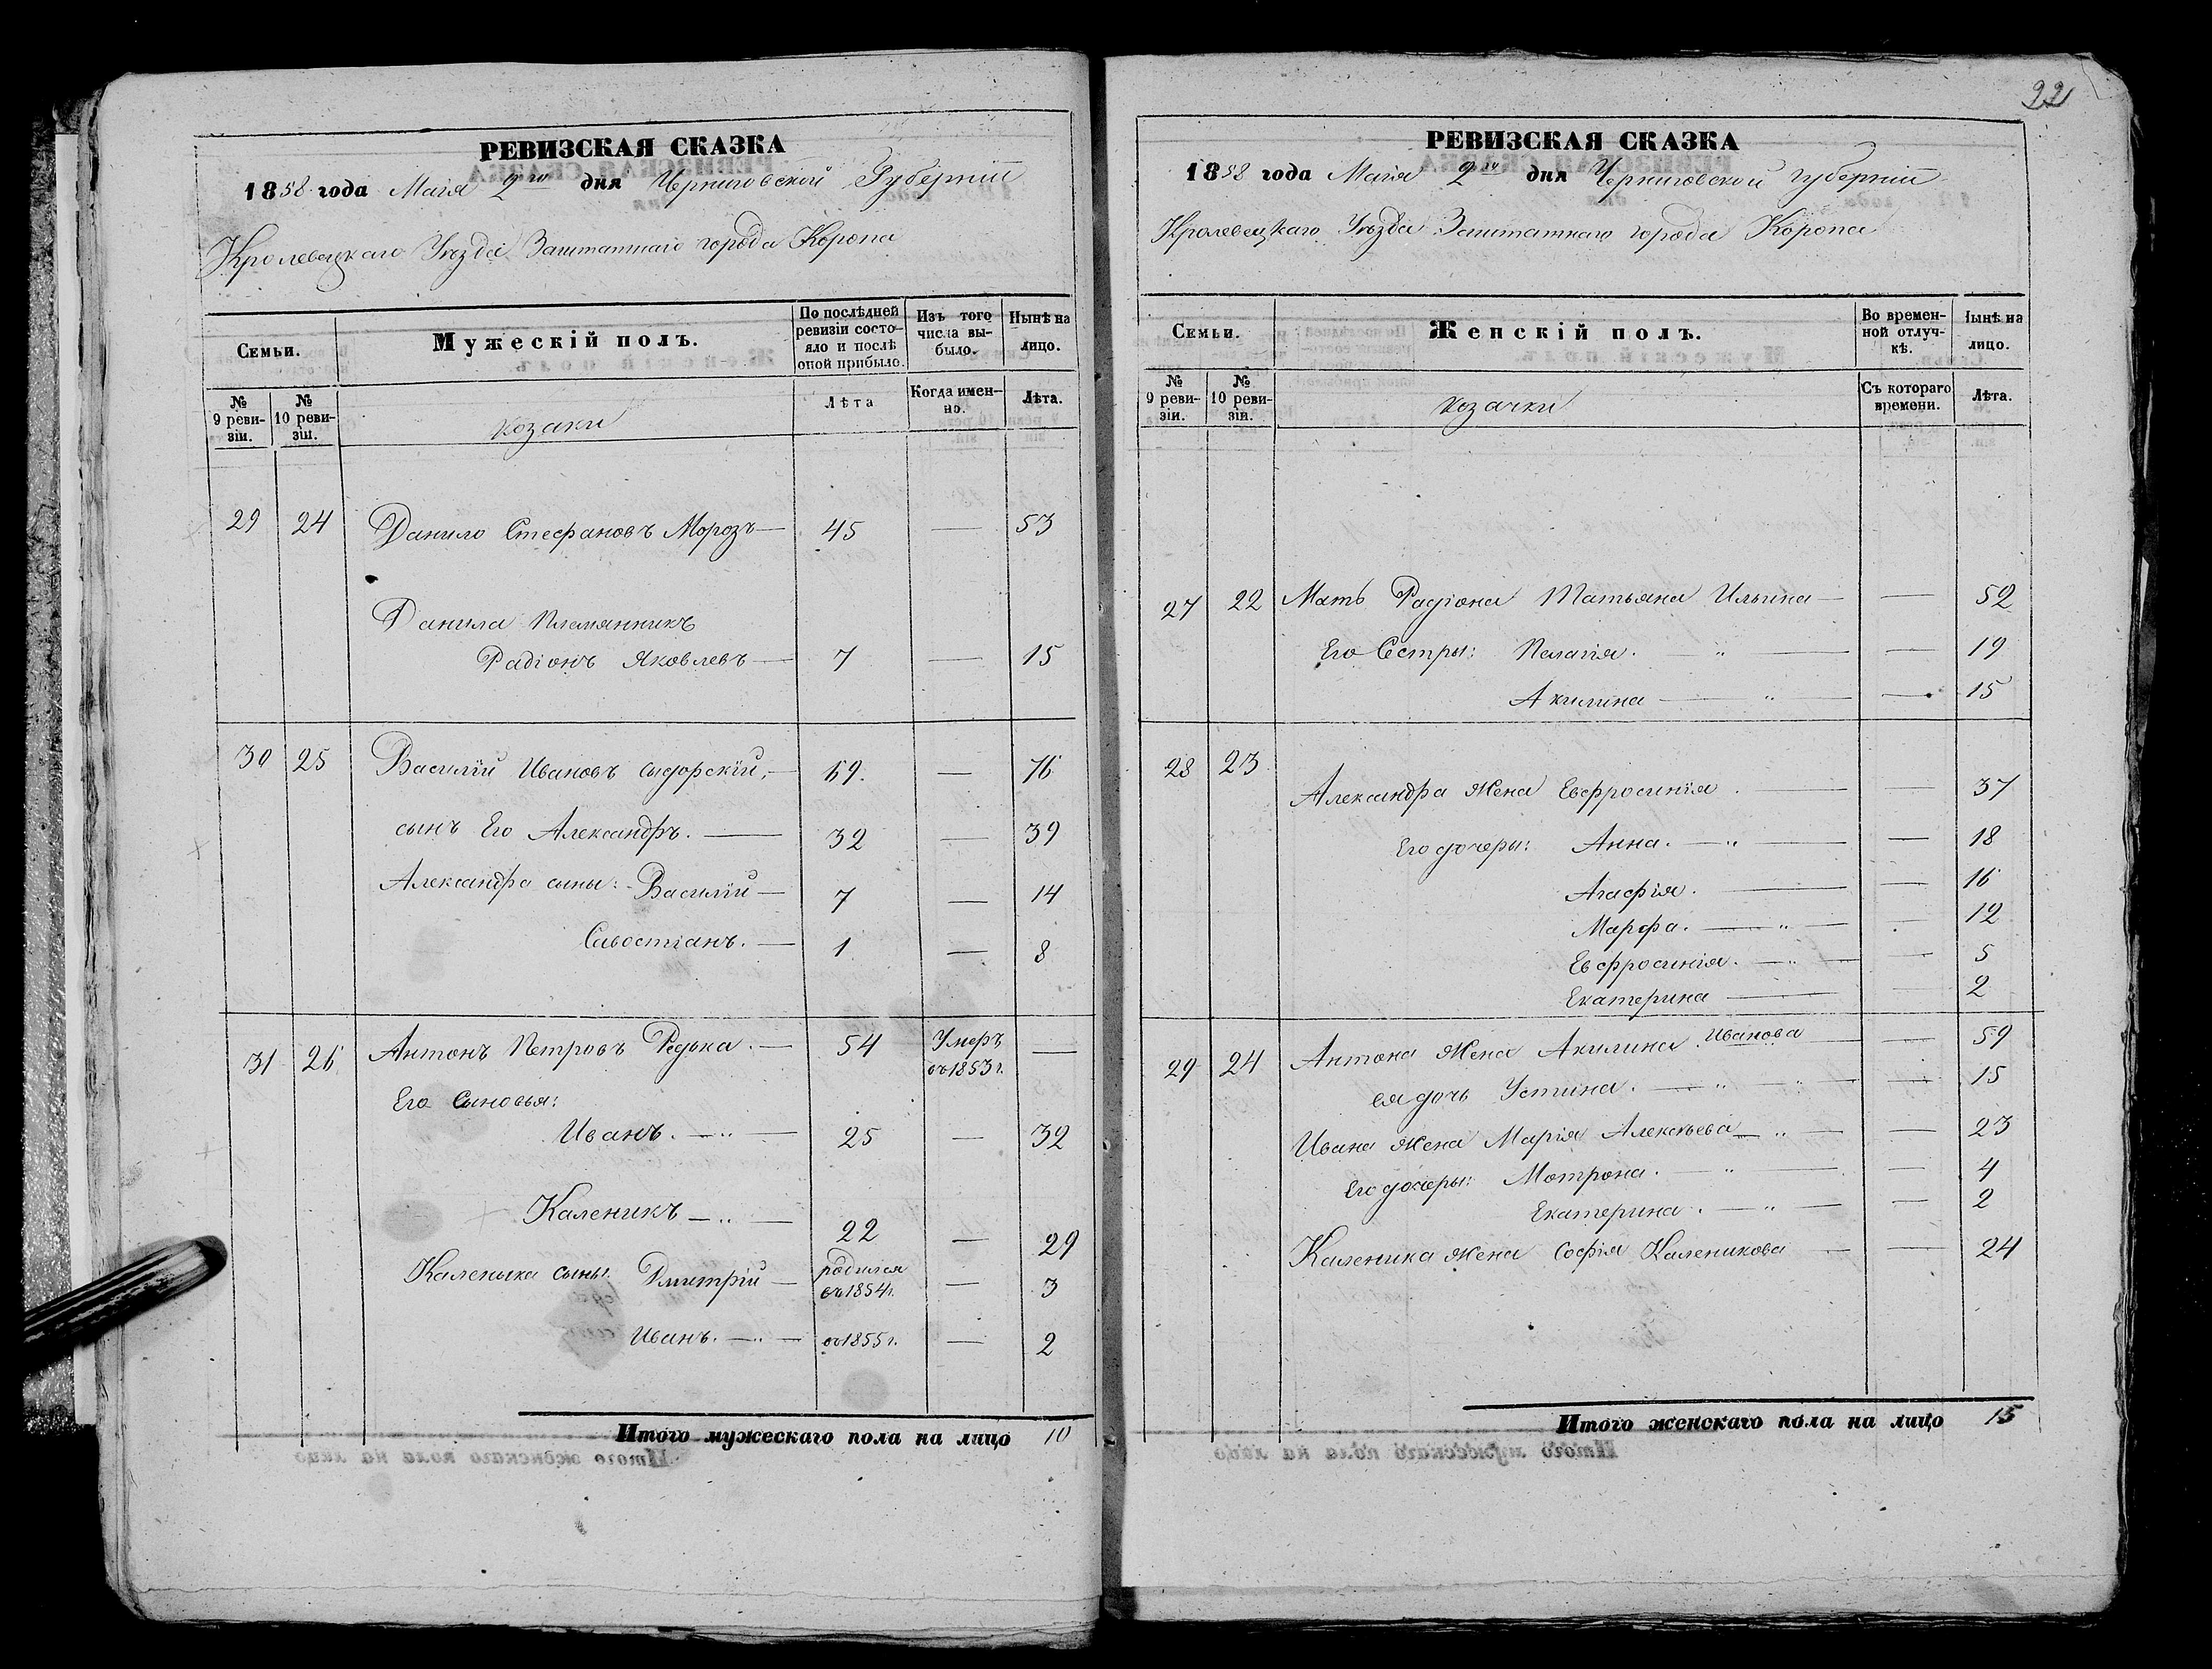 РЕВИЗСКАЯ СКАЗКА
1858 года Маія 2го дня Черниговской Губерніи
Кролевецкаго Уѣзда Заштатнаго города Коропа
Семьи.
Мужескій полъ.
По послѣдней ревизіи состояло и послѣ оной прибыло.
Изъ того числа выбыло.
Нынѣ на лицо.
№ 9 ревизіи.
№ 10 ревизіи.
козаки
Лѣта
Когда именно.
Лѣта.
29 24 Данило Стефановъ Морозъ — 45 — 53
Данила племянникъ
Радіонъ Яковлевъ — 7 — 15
30 25 Василій Ивановъ Сидорскій, — 69. — 76
сынъ Его Александръ. — 32 — 39
Александра сыны: Василій — 7 — 14
Савостіанъ. — 1 — 8
31 26 Антонъ Петровъ Редька. — 54 Умеръ въ 1853 г. —
Его Сыновья:
Иванъ. — „ — 25 — 32
Каленикъ — „ — 22 — 29
Каленика сыны Дмитрій — родился въ 1854 г. — 3
Иванъ. — „ — въ 1855 г. — 2
Итого мужескаго пола на лицо 10
22
РЕВИЗСКАЯ СКАЗКА
1858 года Маія 2го дня Черниговской губерніи
Кролевецкаго Уѣзда Заштатнаго города Коропа
Семьи.
Женскій полъ.
Во временной отлучкѣ.
Нынѣ на лицо.
№ 9 ревизіи.
№ 10 ревизіи.
козачки
Съ котораго времени.
Лѣта.
27 22 Мать Радіона Татьяна Ильина — — 52
Его Сестры: Пелагія. — „ — — 19
Акилина — „ — — 15
28 23 Александра жена Евфросинія. — — 37
Его дочеры: Анна. — „ — — 18
Агафія. — — 16
Марфа. — „ — — 12
Евфросинія. — „ — — 5
Екатерина — — 2
29 24 Антона жена Акилина Иванова — — 59
ея дочь Устина. — „ — „ — — 15
Ивана жена Марія Алексѣева — „ — — 23
Его дочеры: Мотрона. — „ — — 4
Екатерина. — „ — — 2
Каленика жена Софія Каленикова — — 24
Итого женскаго пола на лицо 15